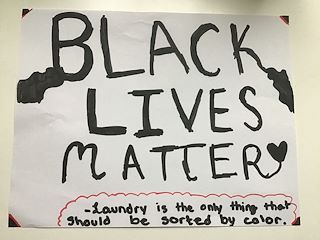 BLACK
LIVES
MATTER
-Laundry is the only thing that
should be sorted by color.